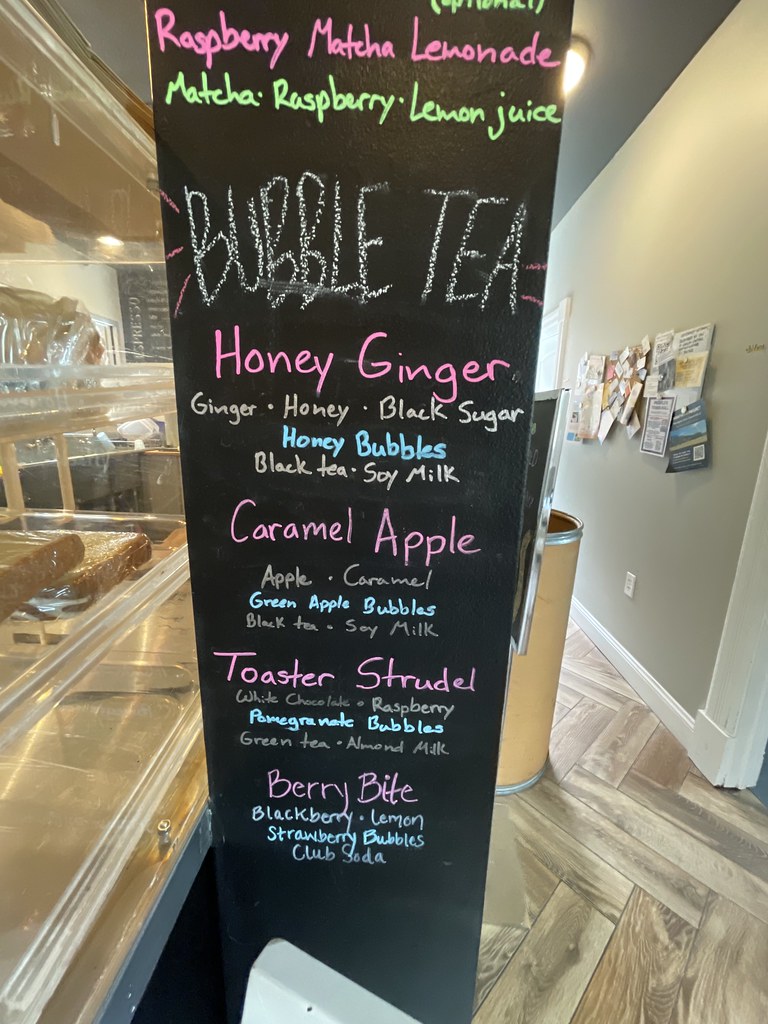 (optional)
Raspberry Matcha Lemonade
Matcha · Raspberry · Lemon juice
BUBBLE TEA
Honey Ginger
Ginger · Honey · Black Sugar
Honey Bubbles
Black tea · Soy Milk
Caramel Apple
Apple · Caramel
Green Apple Bubbles
Black tea · Soy Milk
Toaster Strudel
White Chocolate · Raspberry
Pomegranate Bubbles
Green tea · Almond Milk
Berry Bite
Blackberry · Lemon
Strawberry Bubbles
Club Soda